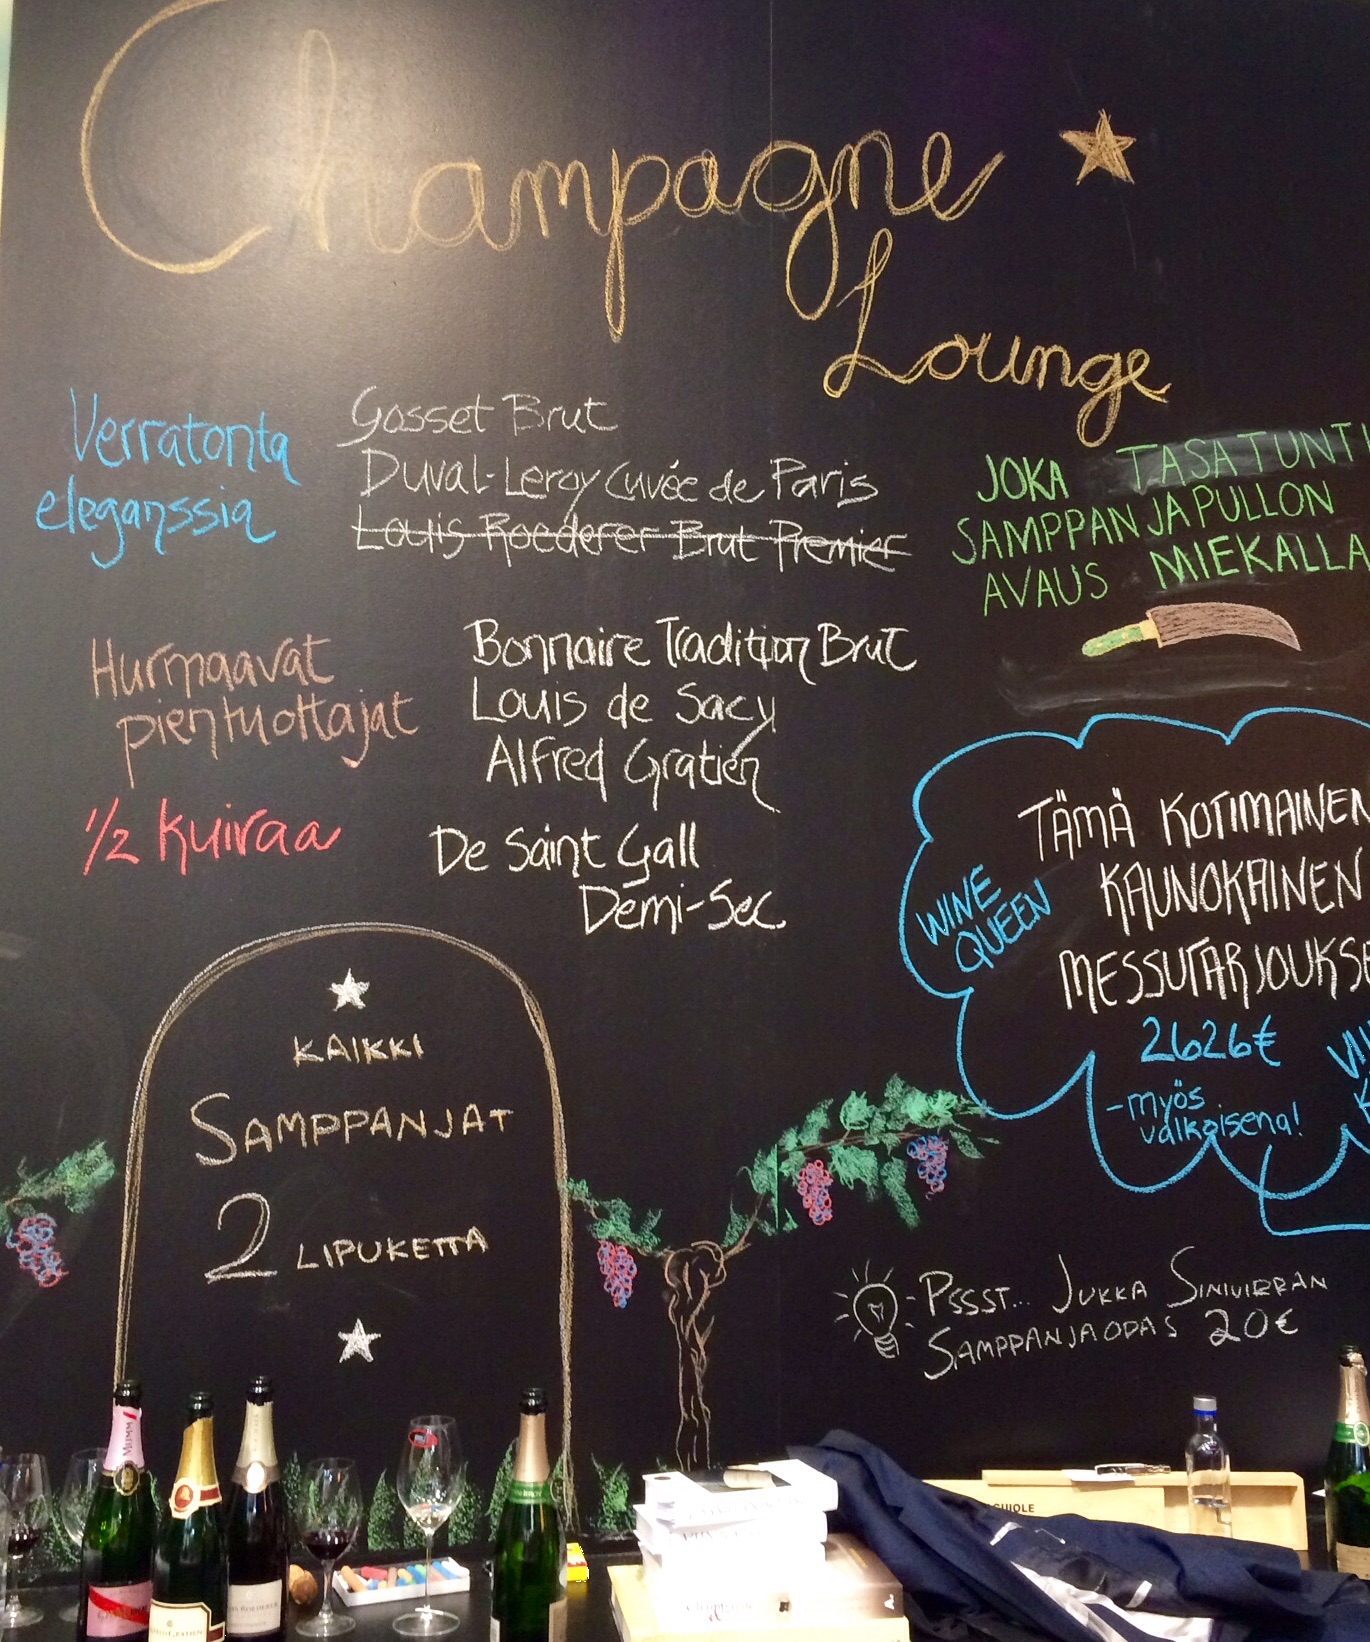 Champagne
Lounge
Verratonta
eleganssia
Gosset Brut
Duval-Leroy Cuvée de Paris
Louis Roederer Brut Premier
JOKA TASATUNTI
SAMPPANJAPULLON
AVAUS MIEKALLA
Hurmaavat
pientuottajat
Bonnaire Tradition Brut
Louis de Sacy
Alfred Gratien
1/2 kuivaa
De Saint Gall
Demi-Sec
WINE
QUEEN
TÄMÄ KOTIMAINEN
KAUNOKAINEN
MESSUTARJOUKSE
2626€
-myös
valkoisena!
KAIKKI
SAMPPANJAT
2 LIPUKETTA
PSSST... JUKKA SINIVIRRAN
SAMPPANJAOPAS 20€
MUMM